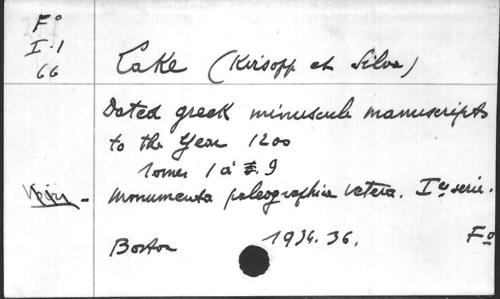 Fº
I.1
66
Lake (Kirsopp et Silva)
Dated greek minuscule manuscripts
to the Year 1200
Tomes 1 à 9
Monumenta paleographica vetera. Iº serie.
Boston 1934.36. Fº